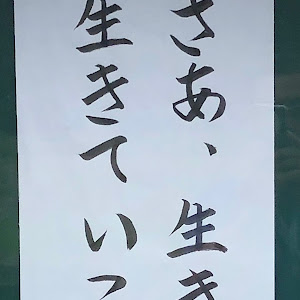 さあ、生き
生きていこ